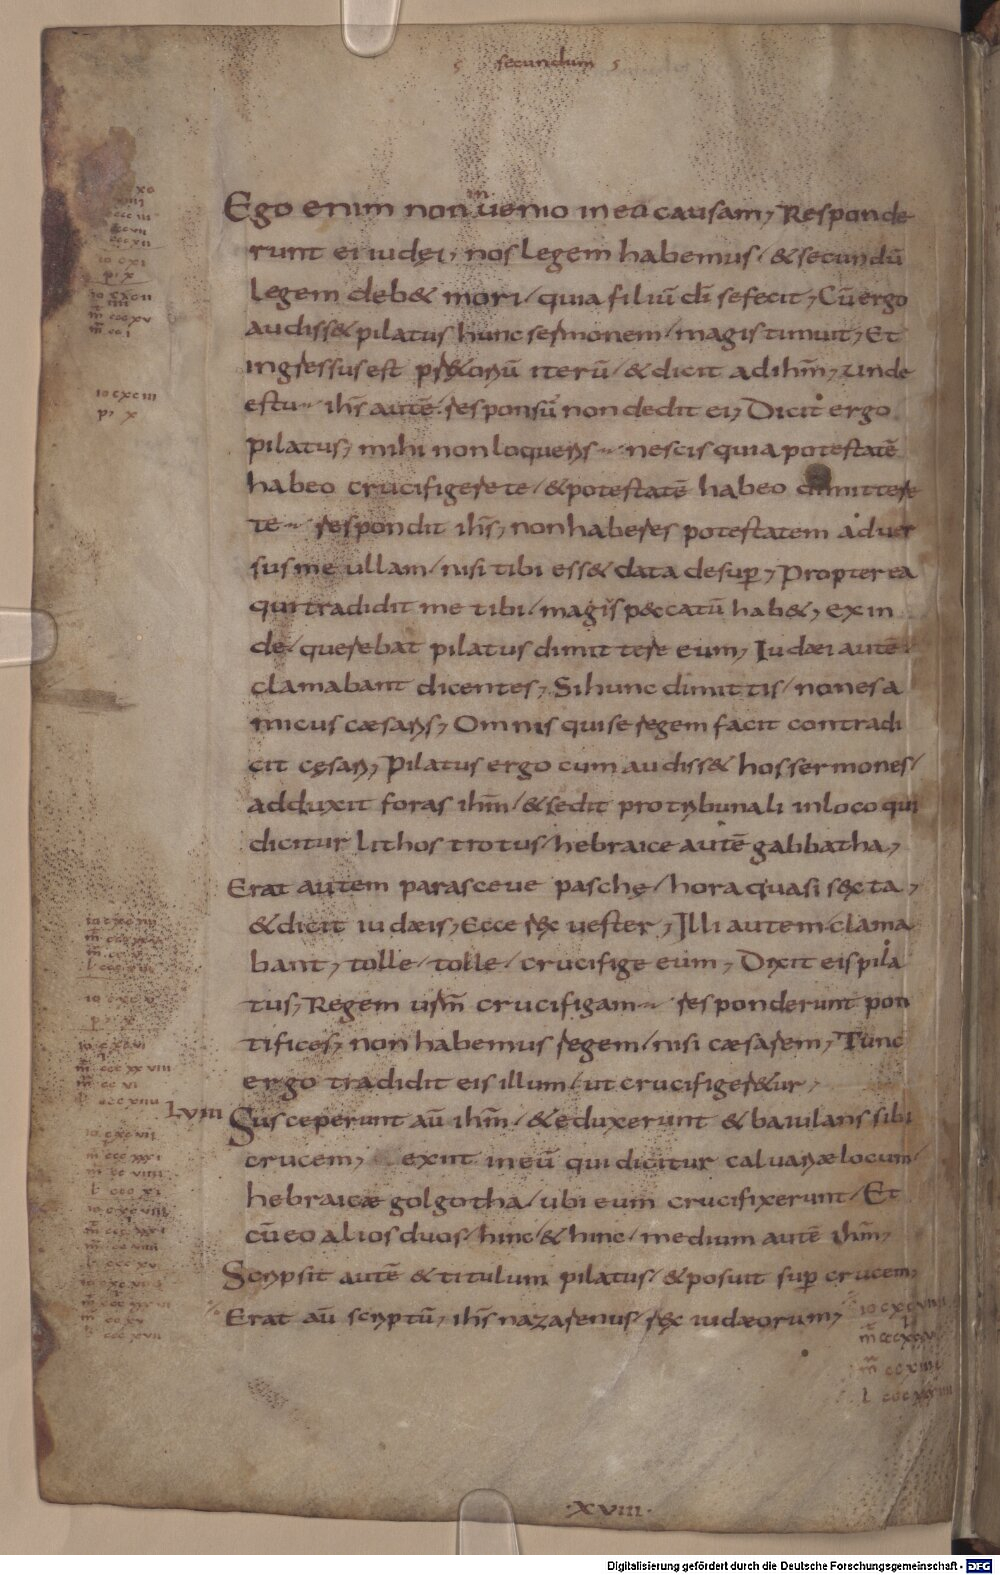 secundum
Ego enim non inuenio in eo causam, Responde
runt ei iudęi, nos legem habemus, & secundū
legem deb& mori, quia filiū di se fecit, Cū ergo
audiss& pilatus hunc sermonem, magis timuit, Et
ingressus est pr&oriū iterū, & dicit ad ihm̄, unde
es tu, ihs̄ autē responsū non dedit ei, Dicit ergo
pilatus, mihi non loqueris, nescis quia potestatē
habeo crucifigere te, & potestatē habeo dimittere
te, respondit ihs̄, non haberes potestatem aduer
sus me ullam, nisi tibi ess& data desup̄, Propterea
qui tradidit me tibi, magis peccatū hab&, exin
de, querebat pilatus dimittere eum, Iudæi autē
clamabant dicentes, Si hunc dimittis, non es a
micus cæsaris, Omnis qui se regem facit contradi
cit cęsari, Pilatus ergo cum audiss& hos sermones,
adduxit foras ihm̄, & sedit pro tribunali in loco qui
dicitur lithostrotus, hebraice autē gabbatha,
Erat autem parasceue paschę, hora quasi sexta,
& dicit iudæis, Ecce rex uester, Illi autem clama
bant, tolle, tolle, crucifige eum, Dixit eis pila
tus, Regem urm̄ crucifigam, responderunt pon
tifices, non habemus regem, nisi cæsarem, Tunc
ergo tradidit eis illum, ut crucifiger&ur,
Lviii Susceperunt aū ihm̄, & eduxerunt & baiulans sibi
crucem, exiit in eū qui dicitur caluariæ locum,
hebraicæ golgotha, ubi eum crucifixerunt, Et
cū eo alios duos, hinc, & hinc, medium autē ihm̄,
Scripsit autē & titulum pilatus, & posuit sup̄ crucem,
Erat aū scriptū, ihs̄ nazarenus, rex iudæorum,
·xviii·
Digitalisierung gefördert durch die Deutsche Forschungsgemeinschaft - DFG